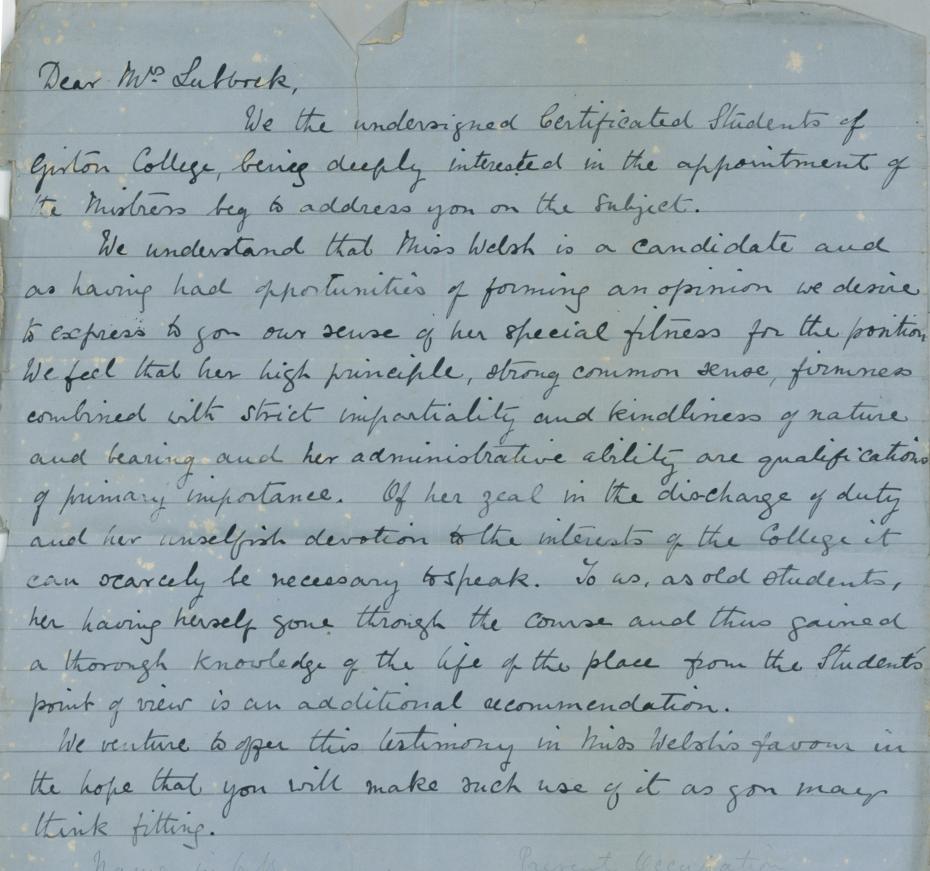 Dear Mrs Lubbock,
We the undersigned Certificated Students of
Girton College, being deeply interested in the appointment of
the Mistress beg to address you on the subject.
We understand that Miss Welsh is a candidate and
as having had opportunities of forming an opinion we desire
to express to you our sense of her special fitness for the position
We feel that her high principle, strong common sense, firmness
combined with strict impartiality and kindliness of nature
and bearing and her administrative ability are qualifications
of primary importance. Of her zeal in the discharge of duty
and her unselfish devotion to the interests of the College it
can scarcely be necessary to speak. To us, as old students,
her having herself gone through the course and thus gained
a thorough knowledge of the life of the place from the Students
point of view is an additional recommendation.
We venture to offer this testimony in Miss Welsh's favour in
the hope that you will make such use of it as you may
think fitting.
Name Present Occupation